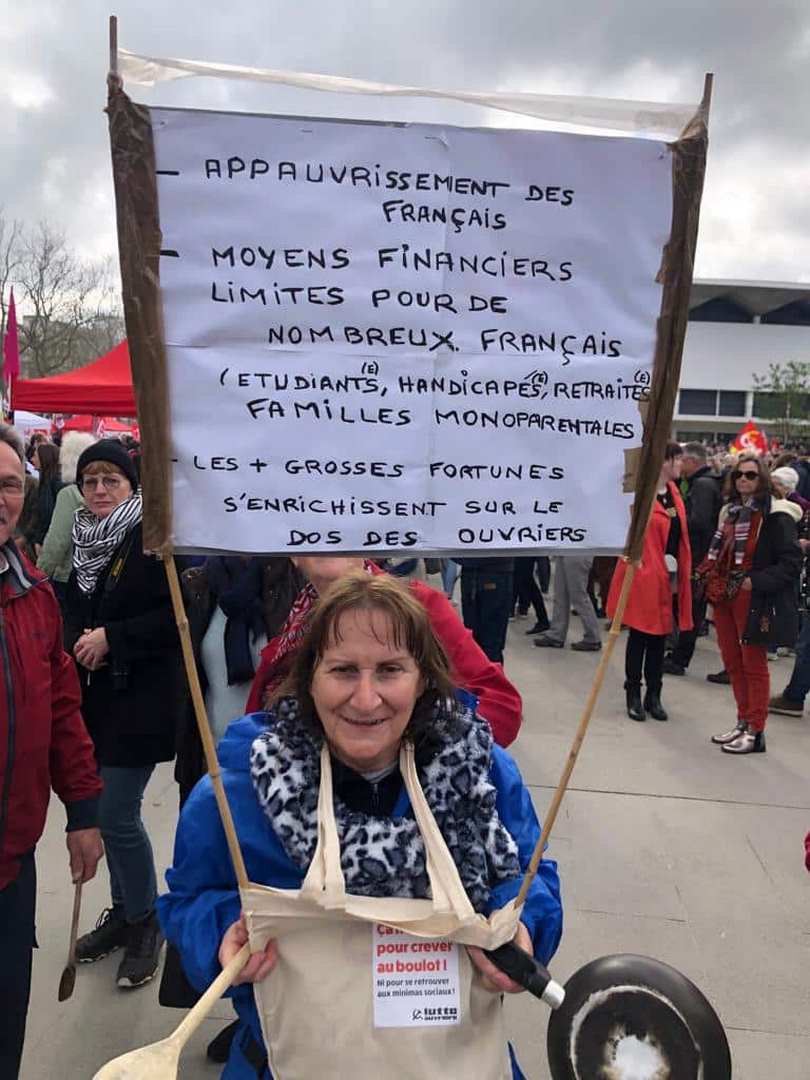 - APPAUVRISSEMENT DES
FRANÇAIS
- MOYENS FINANCIERS
LIMITES POUR DE
NOMBREUX FRANÇAIS
(ETUDIANTS(E), HANDICAPÉS(E), RETRAITÉS(E)
FAMILLES MONOPARENTALES
- LES + GROSSES FORTUNES
S'ENRICHISSENT SUR LE
DOS DES OUVRIERS
pour crever
au boulot !
Ni pour se retrouver
aux minimas sociaux !
lutte
ouvrière